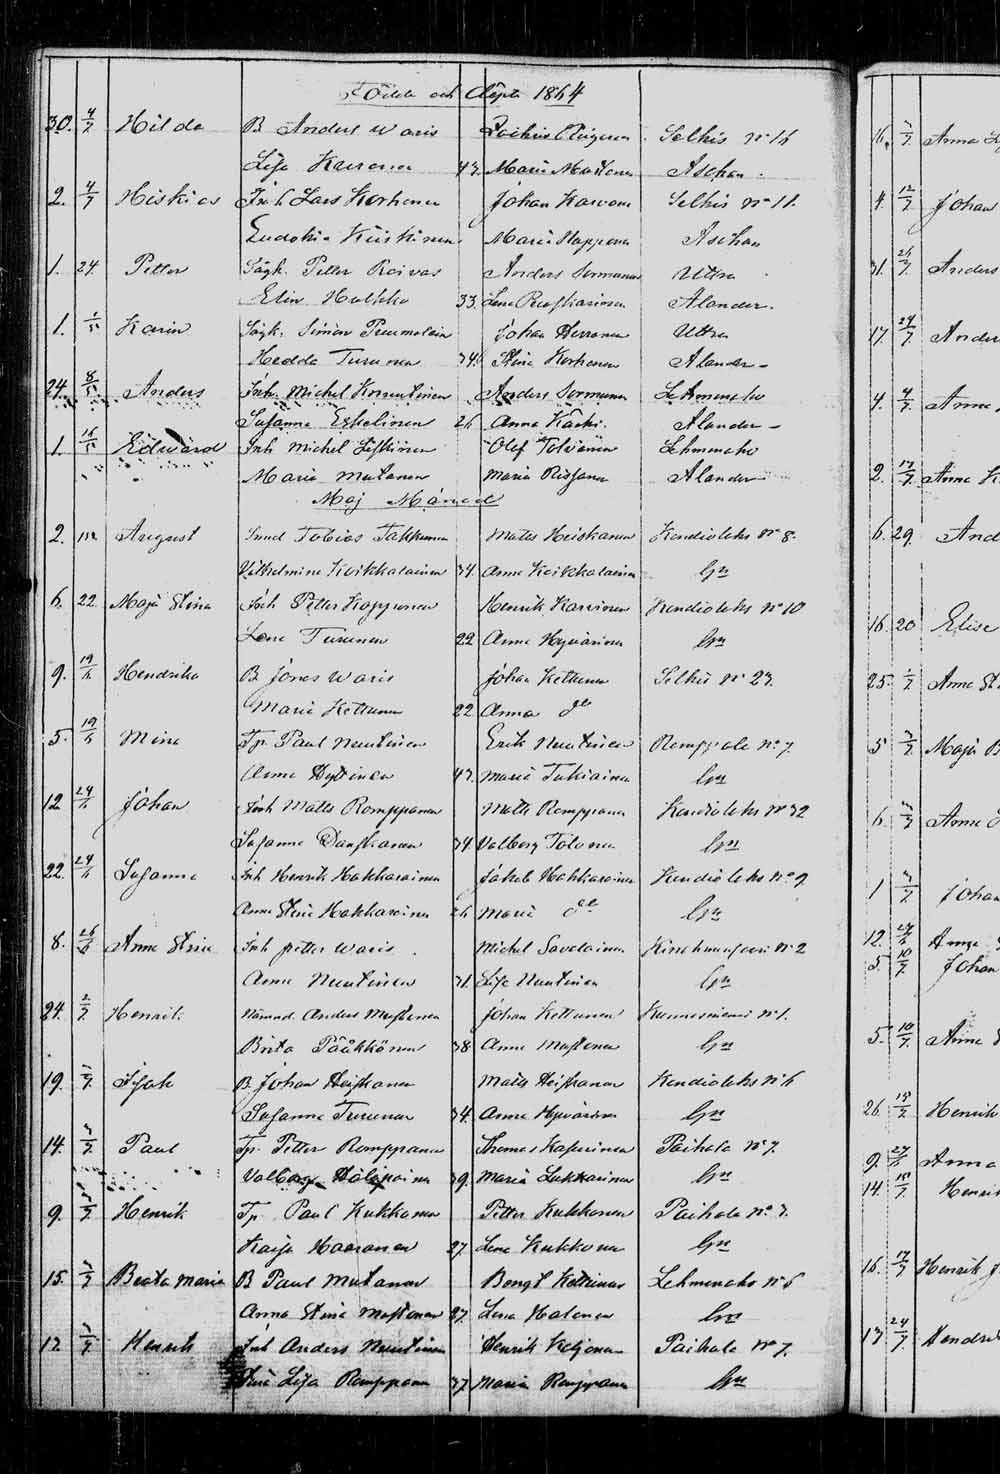 Födda och Döpta 1864
30. 4/7 Hilda B Anders Waris Selkis No 16
Lisa Karvonen 43. Maria Martonen Aschan.
2. 4/7 Hiskias Inh Lars Korhonen Johan Karvonen Selkis No 11.
Eudokia Kiiskinen Maria Happonen Aschan
1. 24. Petter Sågk. Petter Roivas Anders Sormunen Uttra
Elin Hulkko 33. Lena Puuskarinen Alander.
1. Karin Sågk. Simon Johan Herranen Uttra
Hedda Turunen 34. Stina Korhonen Alander
24. 8/5 Anders Inh. Michel Anders Sormunen Lehmencho
Susanna Eskelinen 26 Anna Alander
1. 16/5 Edward Inh Michel Olof Tolvanen Lehmencho
Maria Mutanen Maria Alander
Maj Månad
2. August Tobias Matts Heiskanen Kondiolehs No 8.
Vilhelmina Koikkalainen 34. Anna Koikkalainen Gm
6. 22 Maja Stina Inh Petter Kopponen Henrik Karvinen Kondiolehs No 10
Lena Turunen 22 Anna Hyvärinen Gm
9. 19/6 Hendrika B Jonas Waris Johan Kettunen Selkis No 23.
Maria Kettunen 22 Anna do
5. 19/6 Mina Tp. Paul Nuutinen Erik Nuutinen Romppala No 7.
Anna Hyttinen 43. Maria Tukiainen Gm
12 24/6 Johan Inh Matts Romppanen Matts Romppanen Kondiolehs No 32
Susanna Danskanen 34. Valborg Tolonen Gm
22. 24/6 Susanna Inh Henrik Hakkarainen Jakob Hakkarainen Kondiolehs No 9
Anna Stina Hakkarainen 26 Maria do Gm
8. 26/6 Anna Stina Inh Petter Waris Michel Savolainen No 2
Anna Nuutinen 31. Lisa Nuutinen Gm
24. 2/7 Henrik Nämnd. Anders Mustonen Johan Kettunen Kunnasniemi No 1.
Brita Pääkkönen 38 Anna Mustonen Gm
19. Isak B. Johan Heiskanen Matts Heiskanen Kondiolehs No 6
Susanna Turunen 34. Anna Hyvärinen Gm
14. Paul Tp. Petter Romppanen Thomas Kasurinen Paihola No 7.
Valborg 39. Maria Lukkarinen Gm
9. Henrik Tp. Paul Kukkonen Petter Kukkonen Paihola No 3.
Kaisa Haaranen 27. Lena Kukkonen Gm
15. Beata Maria B Paul Mutanen Bengt Kettunen Lehmencho No 6
Anna Stina Mustonen 27. Lena Halonen Gm
12 Henrik Inh Anders Nuutinen Henrik Paihola No 7.
Stina Lisa Romppanen 37. Maria Romppanen Gm
16. Anna
4. 12/7 Johan
31. Anders
17. 24/7 Ander
4. 4/7 Anna
2. 17/7 Anna K
6. 29. And
16. 20 Elise
25. Anna St
5 Maja B
6. Anna
1 Johan
12. Anna
5. 10/7 Johan
5. 10/7 Anna
26. 15/7 Henrik
9. Anna
14. 15/7 Henrik
16. 17/7 Henrik J
13. 24/7 Hendri